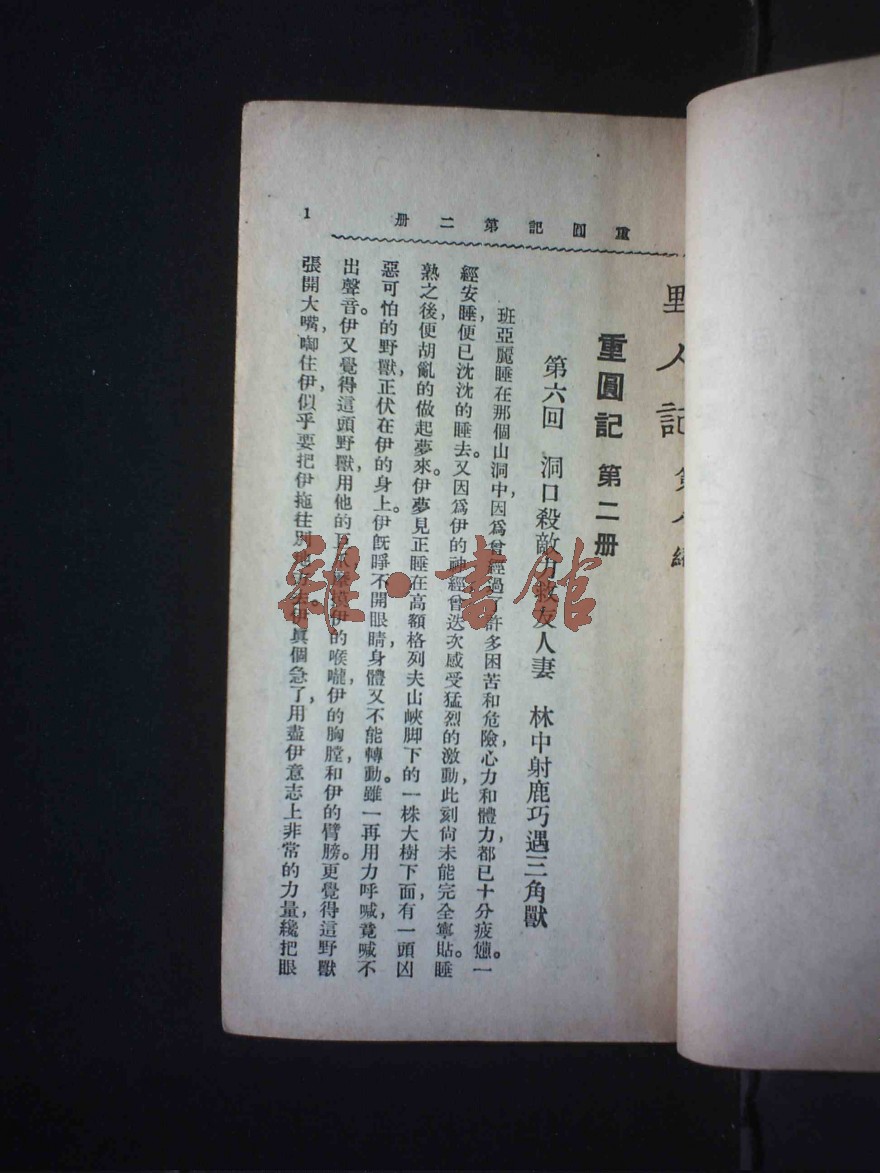 重圓記第二册
1
野人記
重圓記 第二册
第六回 洞口殺敵力救友人妻 林中射鹿巧遇三角獸
班亞麗睡在那個山洞中，因爲曾經過了許多困苦和危險，心力和體力，都已十分疲憊。一
經安睡，便已沈沈的睡去。又因爲伊的神經，曾迭次感受猛烈的激動，此刻尙未能完全寧貼。睡
熟之後，便胡亂的做起夢來。伊夢見正睡在高額格列夫山峽脚下的一株大樹下面，有一頭凶
惡可怕的野獸，正伏在伊的身上。伊旣睜不開眼睛，身體又不能轉動。雖一再用力呼喊，竟喊不
出聲音。伊又覺得這頭野獸，用他的 伊的喉嚨，伊的胸膛，和伊的臂膀。更覺得這野獸
張開大嘴，啣住伊，似乎要把伊拖往別 去。伊眞個急了，用盡伊意志上非常的力量，纔把眼
雜·書館